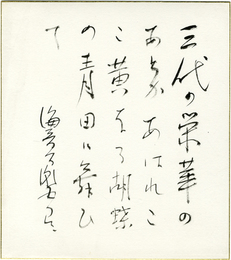 三代の栄華の
あとあはれこ
こ黄なる胡蝶
の青田に舞ひ
て